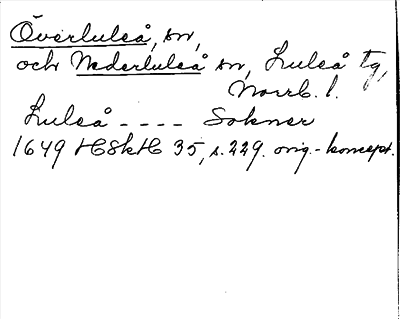 Överluleå, sn,
och Nederluleå sn, Luleå tg,
Norrb. l.
Luleå ---- Sokner
1649 HSkH 35, s. 229. orig.-koncept.